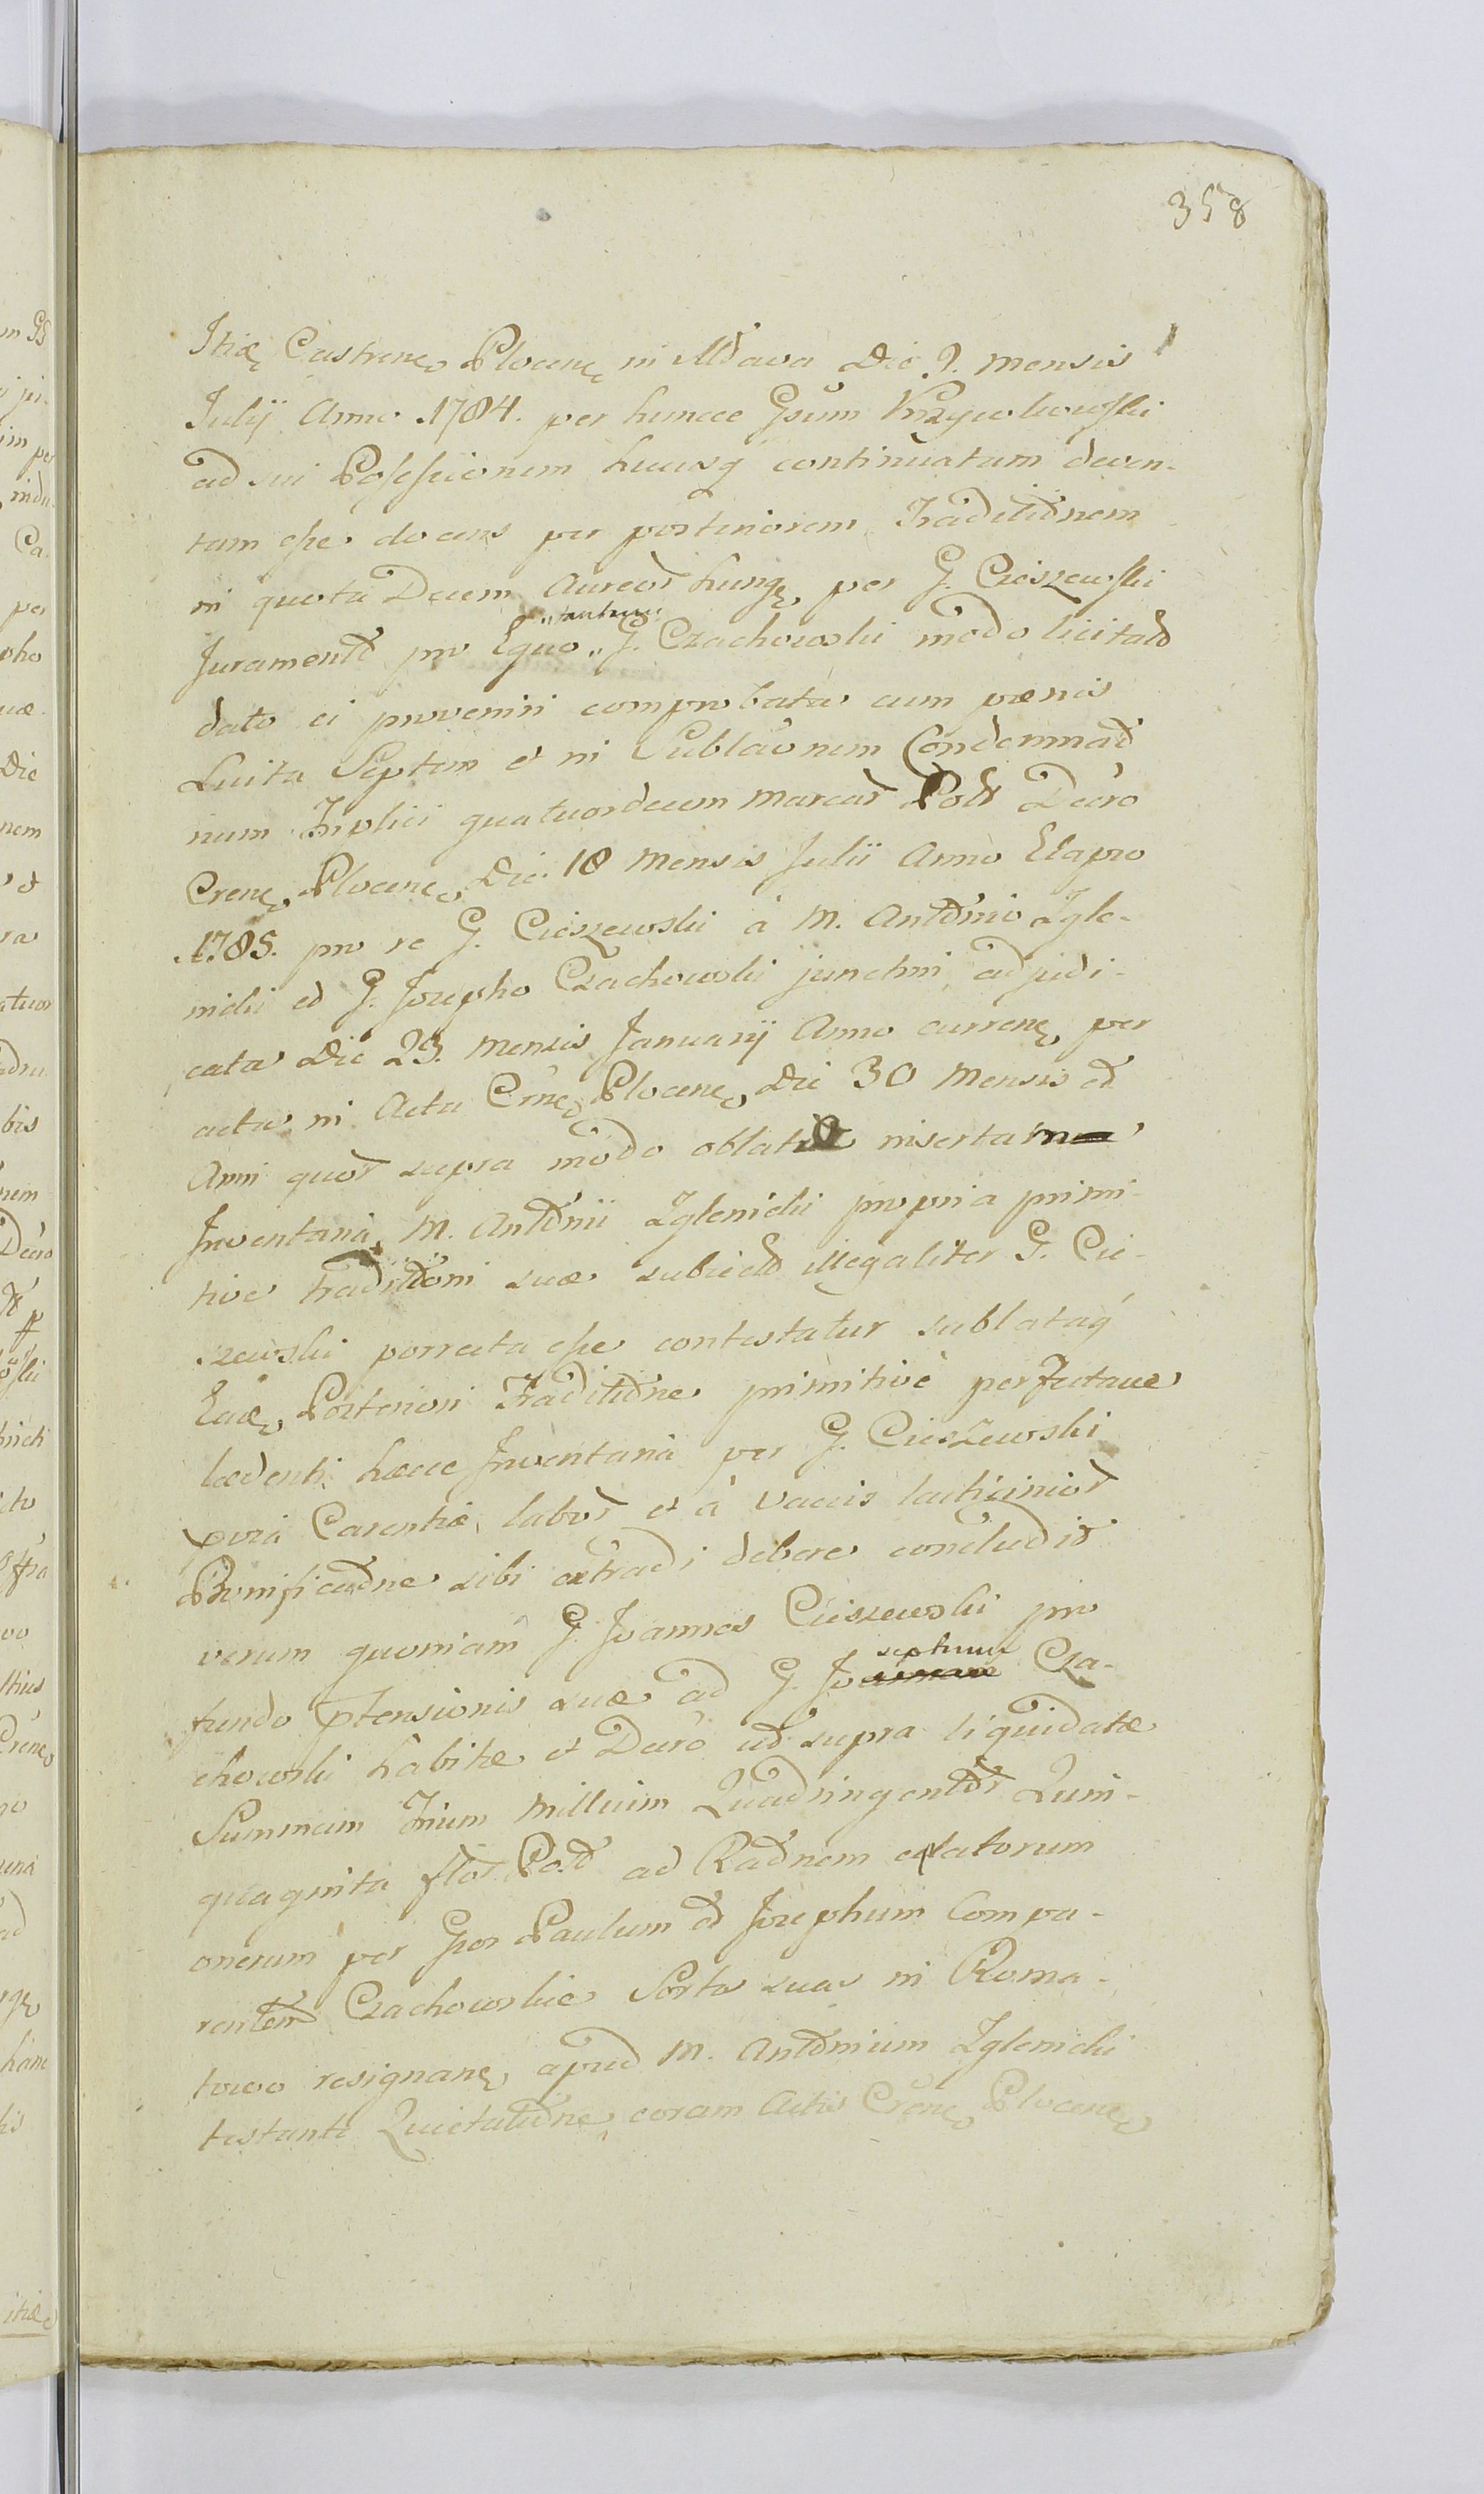 358
Itiæ Castrens Plocens in Mława Die 9. Mensis
Julij Anno 1784. per huncce Gsum Krzywkowski
ad sui Possessionem hucusq continuatum deven-
tum esse docens per posteriorem Traditiōnem
in quota Decem Aureor hung per G. Cieszewski
"tantum
Jurament pro Equo " G. Czachowski modo licitato
dato ei provenisi comprobata cum pœnis
Luita Septem et in Sublaōnem Condemnaō
num Triplici quatuordecem Marcar Pol Decro
Crens Plocens Die 18 Mensis Julii Anno Elapso
1785. pro re G. Cieszewski à M. Antōnio Zgle-
nicki et G. Josepho Czachowski junctim adjudi-
cata Die 29. Mensis Januarij Anno currens per
acta in Acta Crens Plocens Die 30 Mensis et
Anni quor supra modo oblatæ inserta
Inventaria M. Antōnii Zglenicki propria primi-
tive traditioni suæ subiecta illegaliter G. Cie-
szewski porrecta esse contestatur sublataq
Eaq Posteriori Traditiōne primitivè perfectave
lædenti hæcce Inventaria per G. Cieszewski
Carentiæ labor et à Vaccis lacticinior
Bonificaōne sibi extradi debere concludit
verum quoniam G. Joannes Cieszewski pro
septum
fundo ptensionis suæ ad G. Jo Cza-
chowski habitæ et Decro ut supra liquidatæ
Summam Trium Millium Quadringentor Quin-
quaginta flor Pol ad Raōnem elatorum
onerum per Gsos Paulum et Josephum Compa-
rentem Czachowskie Sortes suas in Roma-
towo resignans apud M. Antōnium Zglenicki
testante Quietatiōne coram Actis Crens Plocens